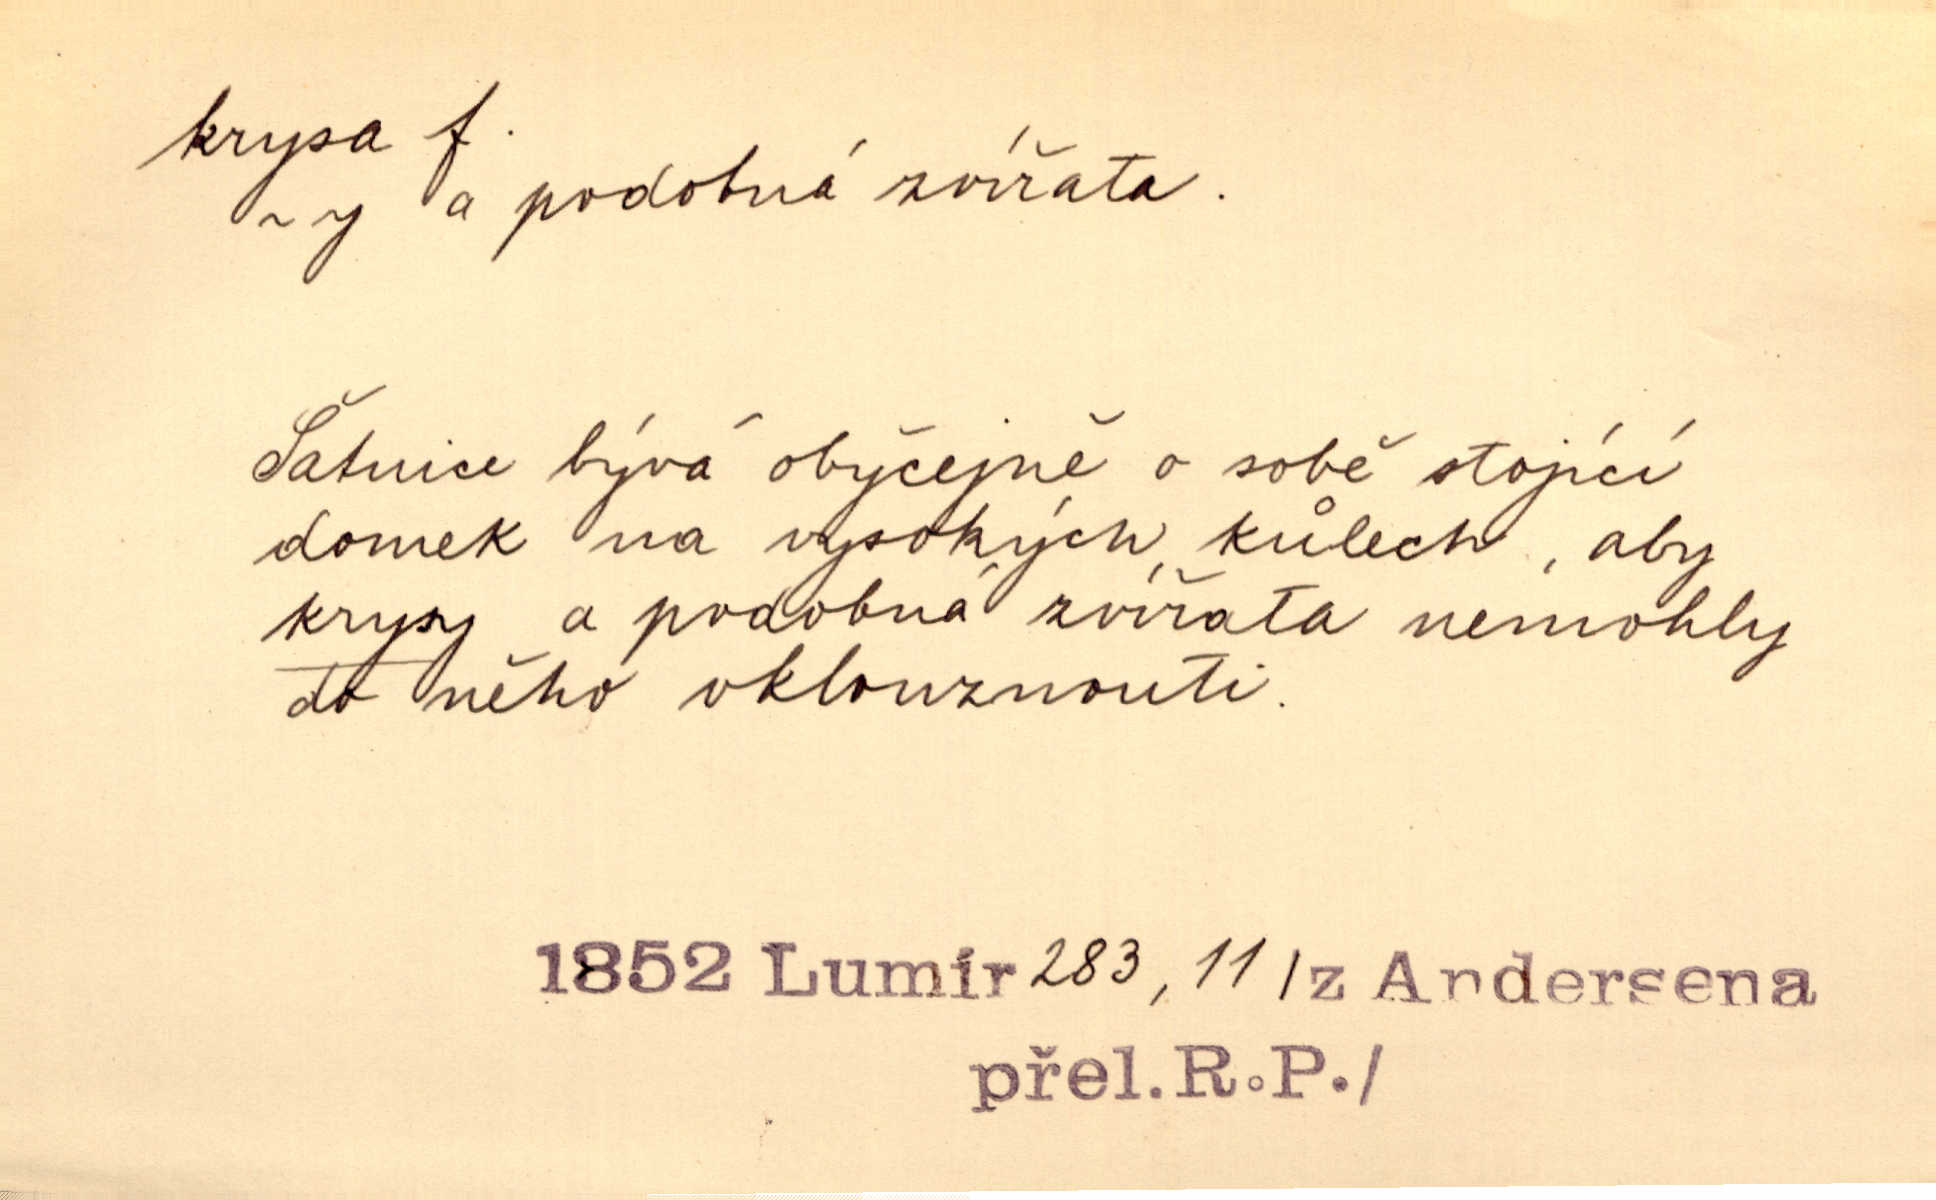 krysa f.
~y a podobná zvířata.
Šatnice bývá obyčejně o sobě stojící
domek na vysokých kůlech, aby
krysy a podobná zvířata nemohly
do něho vklouznouti.
1852 Lumír 283, 11 /z Andersena
přel. R.P./